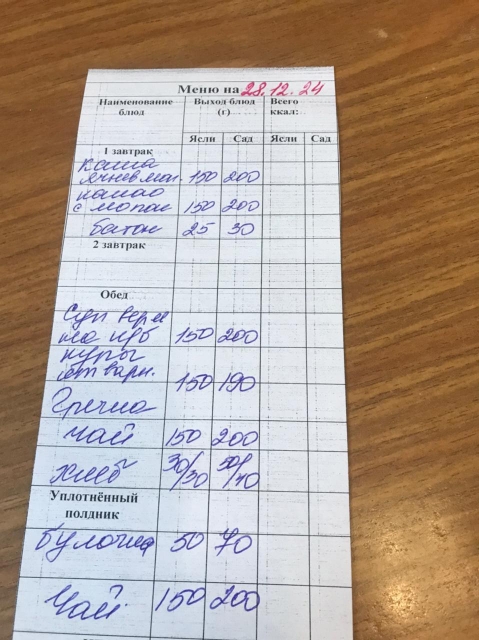 Меню на 28.12.24
Наименование блюд Выход блюд (г) Всего ккал:
Ясли Сад Ясли Сад
1 завтрак
Каша
ячнев мол. 150 200
какао
с молоком 150 200
батон 25 30
2 завтрак
Обед
Суп верм
на кур
куры
отварн. 150 200
150 190
Гречка
чай 150 200
хлеб 30/30 50/40
Уплотнённый
полдник
булочка 50 70
Чай 150 200